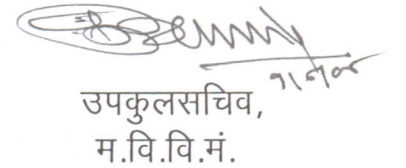 उपकुलसचिव,
म.वि.वि.मं.